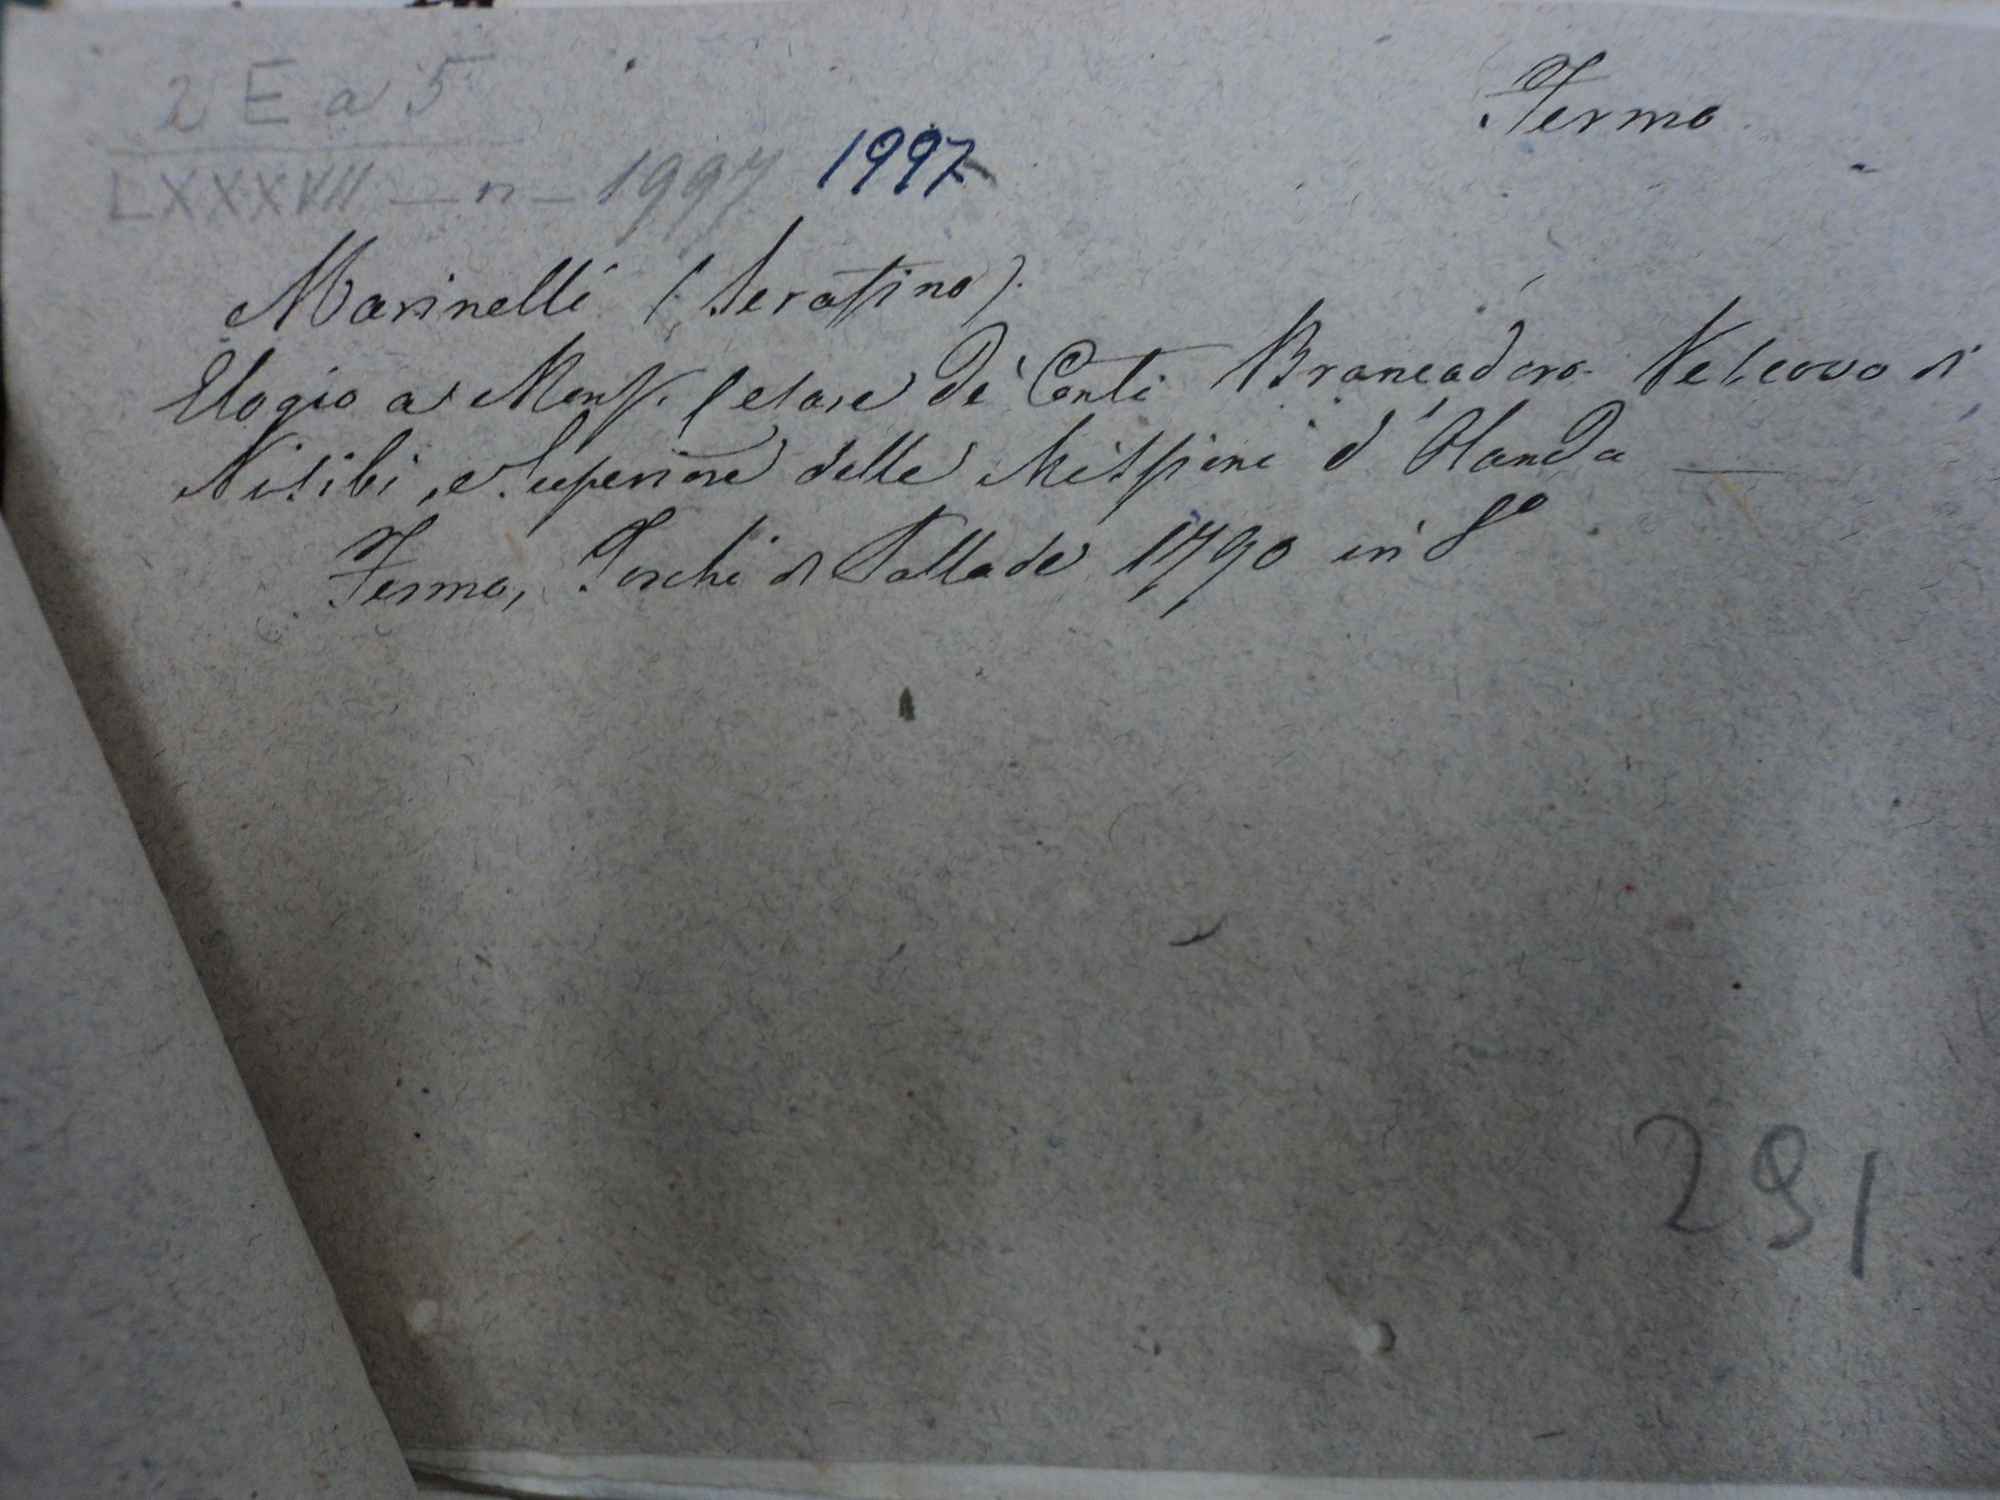 2 E a 5
Fermo
LXXXVII - n - 1997 1997
Marinelli (Serafino).
Elogio a Monsr. Cesare de' Conti Brancadoro Vescovo di
Nisibi, e Superiore delle Missioni d'Olanda
Fermo, Torchi di Pallade 1790 in 8º
291